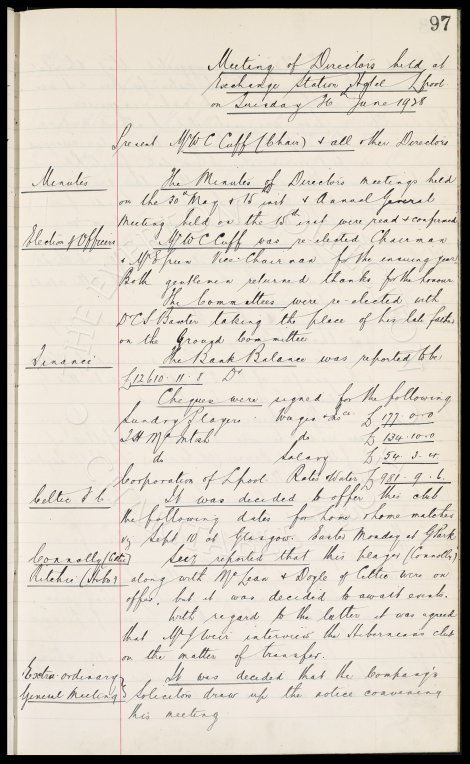 97
Meeting of Directors held at
Exchange Station Hotel L'pool
on Tuesday 26th June 1928
Present Mr W C Cuff (Chair) & all other Directors
Minutes
The Minutes of Directors meetings held
on the 30th May & 15th inst & Annual General
Meeting held on the 15th inst were read & confirmed
Election of Officers
Mr W C Cuff was re-elected Chairman
& Mr Green Vice-Chairman for the ensuing year
Both gentlemen returned thanks for the honour
The Committees were re-elected with
Dr C S Baxter taking the place of his late father
on the Ground Committee
Finance
The Bank Balance was reported to be
£12610. 11. 8 Dr
Cheques were signed for the following
Sundry Players Wages &c £177. 0. 0
T H McIntosh do £134. 10. 0
do Salary £54. 3. 4.
Corporation of L'pool Rates & Water £981. 9. 6.
Celtic F C
It was decided to offer this club
the following dates for home & home matches
viz Sept 10 at Glasgow. Easter Monday at G Park
Connolly (Celtic)
Ritchie (Hibs)
Secy reported that this player (Connolly)
along with McLean & Doyle of Celtic were on
offer, but it was decided to await events.
With regard to the latter it was agreed
that Mr J Weir interview the Hibernians club
on the matter of transfer.
Extra-ordinary
General Meeting
It was decided that the Company's
Solicitors draw up the notice convening
this meeting